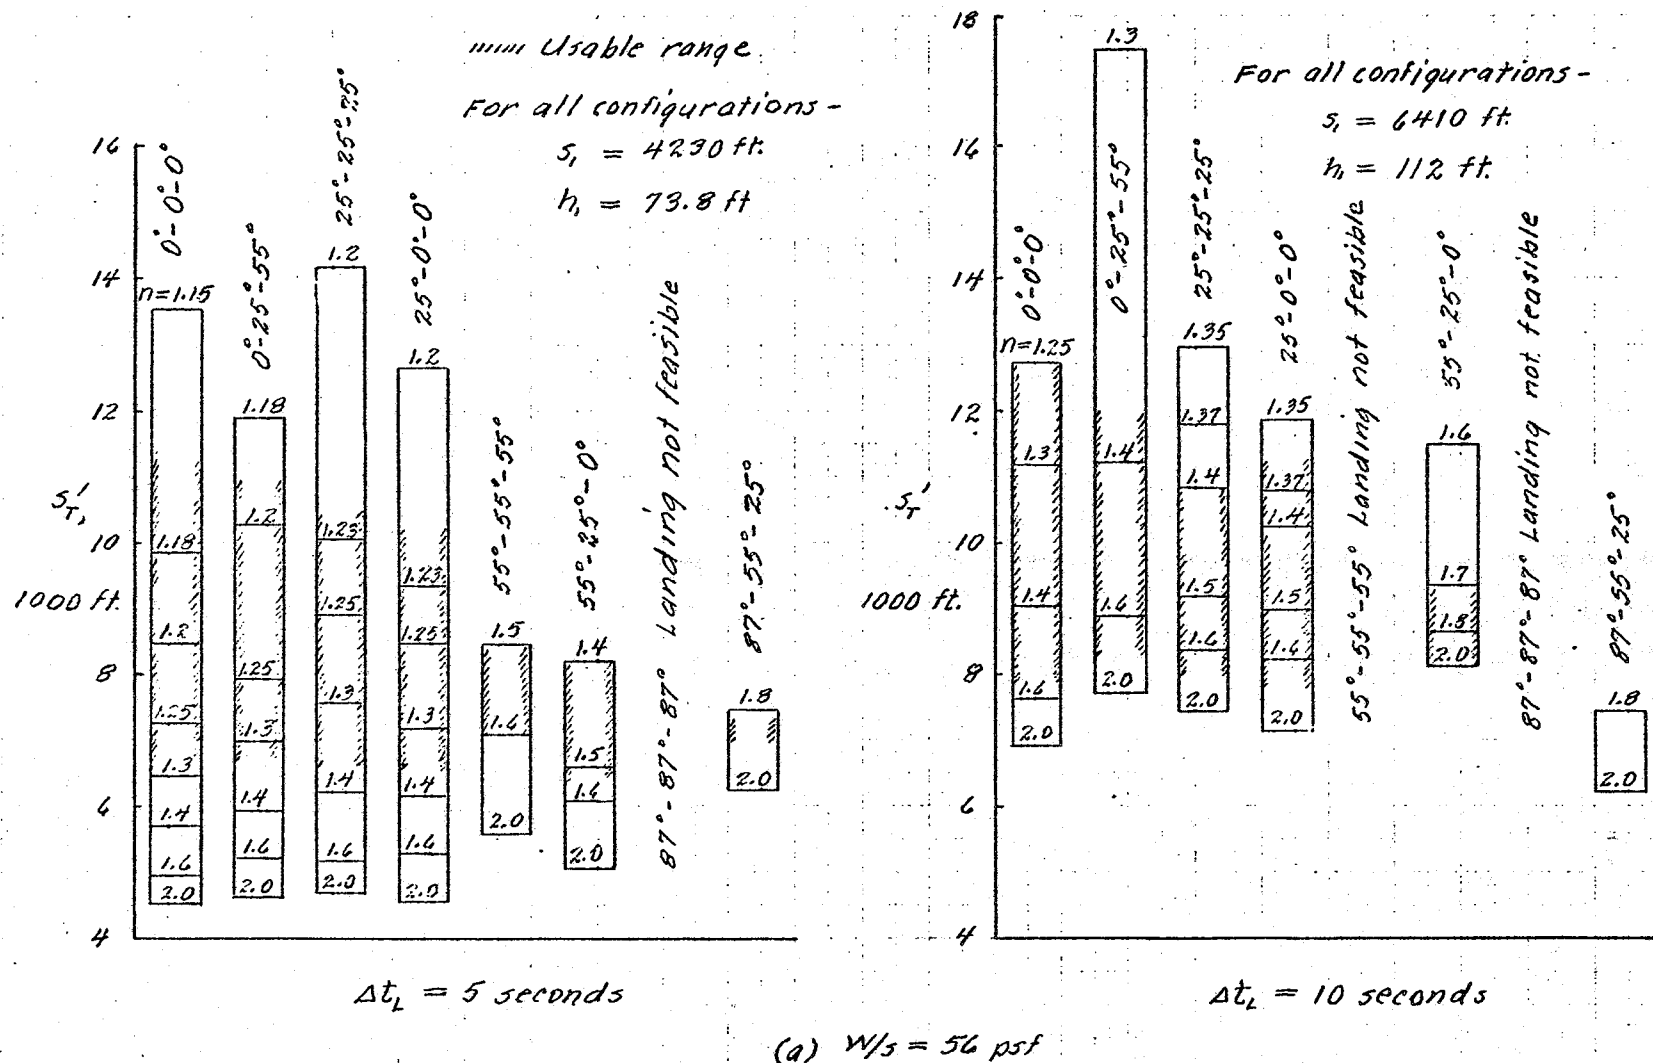 Usable range
For all configurations -
s₁ = 4230 ft.
h₁ = 73.8 ft
16
14
12
10
8
6
4
S'T,
1000 ft.
0°-0°-0°
n=1.15
1.18
1.2
1.25
1.3
1.4
1.6
2.0
0°-25°-55°
1.18
1.2
1.25
1.3
1.4
1.6
2.0
25°-25°-25°
1.2
1.23
1.25
1.3
1.4
1.6
2.0
25°-0°-0°
1.2
1.23
1.25
1.3
1.4
1.6
2.0
55°-55°-55°
1.5
1.6
2.0
55°-25°-0°
1.4
1.5
1.6
2.0
87°-87°-87° Landing not feasible
87°-55°-25°
1.8
2.0
Δt_L = 5 seconds
For all configurations -
s₁ = 6410 ft.
h₁ = 112 ft.
18
16
14
12
10
8
6
4
S'T
1000 ft.
0°-0°-0°
n=1.25
1.3
1.4
1.6
2.0
1.3
0°-25°-55°
1.4
1.6
2.0
25°-25°-25°
1.35
1.37
1.4
1.5
1.6
2.0
25°-0°-0°
1.35
1.37
1.4
1.5
1.6
2.0
55°-55°-55° Landing not feasible
55°-25°-0°
1.6
1.7
1.8
2.0
87°-87°-87° Landing not feasible
87°-55°-25°
1.8
2.0
Δt_L = 10 seconds
(a) W/s = 56 psf